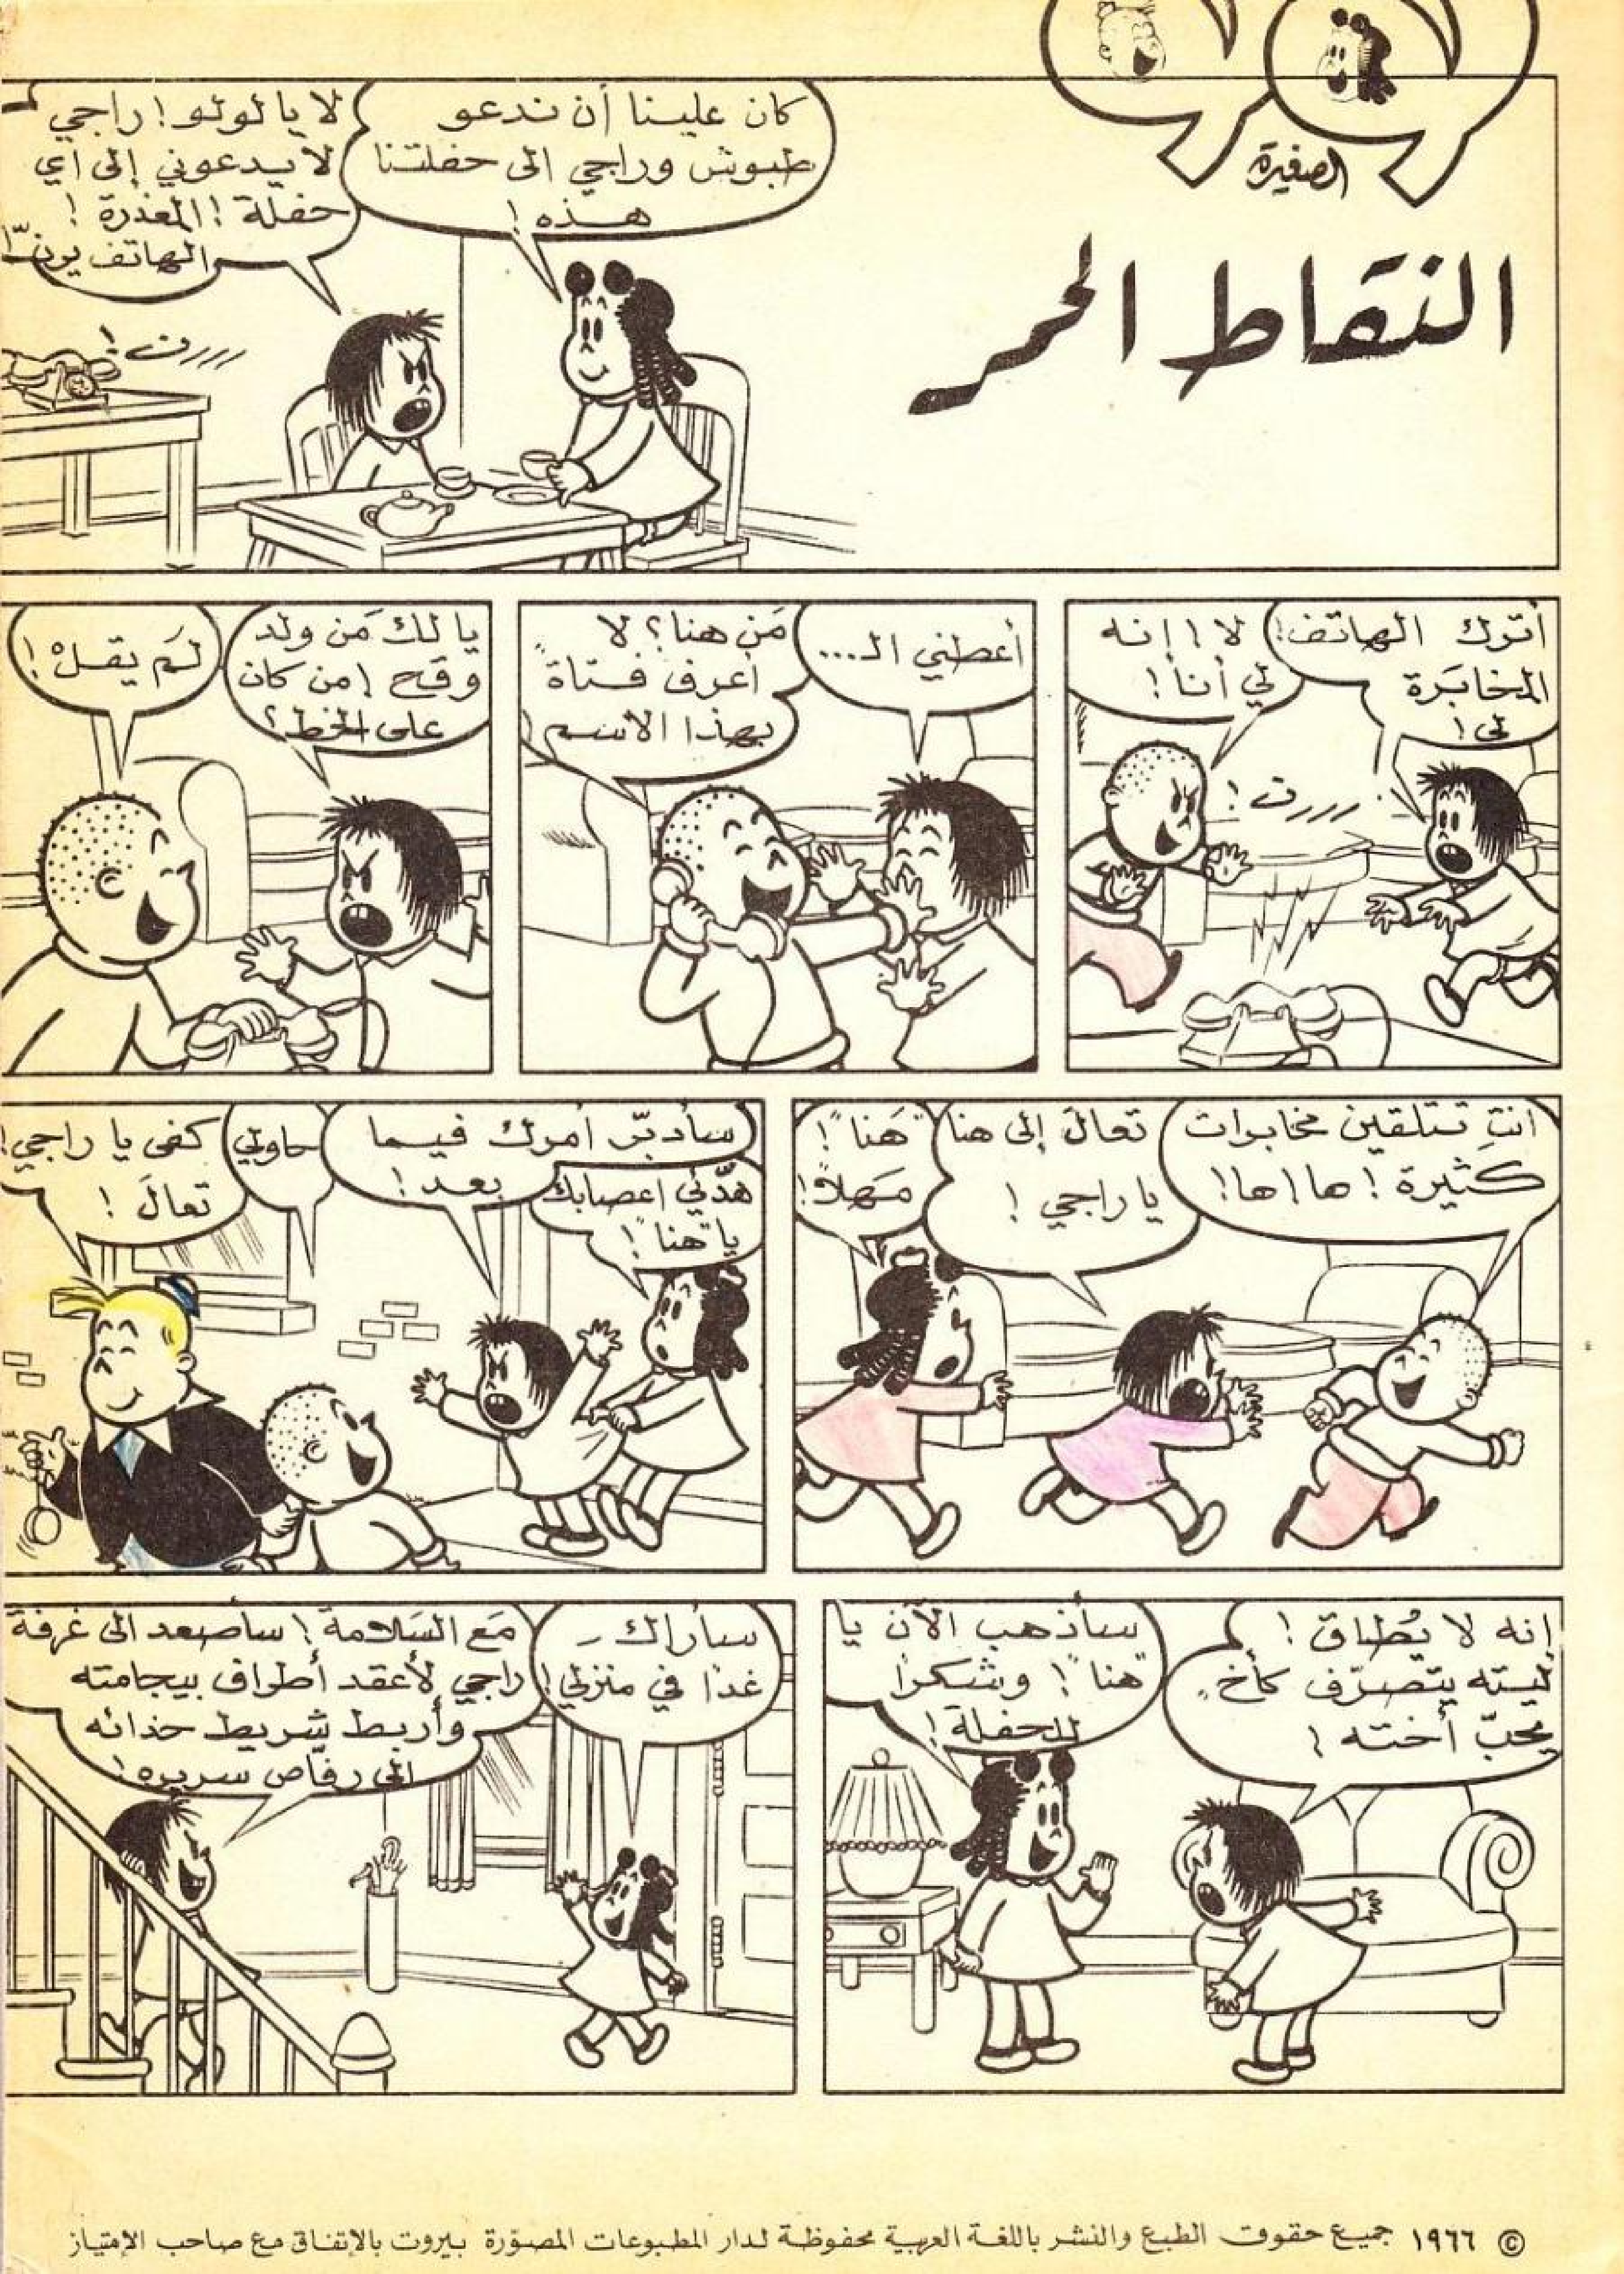 الصغيرة
النقاط الحمر
كان علينا أن ندعو
طبوش وراجي الى حفلتنا
هذه!
لا يا لولو! راجي
لا يدعوني إلى أي
حفلة! المعذرة!
الهاتف يرنّ!
رررن!
أترك الهاتف!
المخابرة
لي!
لا! إنه
لي أنا!
رررن!
أعطني الـ...
مَن هنا؟ لا
أعرف فتاة
بهذا الاسم!
يا لك مَن ولد
وقح! من كان
على الخط؟
لَم يقلْ!
انتِ تتلقين مخابرات
كثيرة! ها! ها!
تعالَ إلى هنا
يا راجي!
"هَنا"!
مَهلاً!
هدّئي اعصابك
يا "هنا"!
سأدبّر أمرك فيما
بعد!
حاولي
كفى يا راجي!
تعالَ!
إنه لا يُطاق!
ليته يتصرّف كأخ
يحبّ أخته!
سأذهب الآن يا
"هنا"! وشكراً
للحفلة!
سأراك -
غداً في منزلي!
مَع السَلامة! سأصعد الى غرفة
راجي لأعقد أطراف بيجامته
وأربط شريط حذائه
الى رفّاص سريره!
© ١٩٦٦ جميع حقوق الطبع والنشر باللغة العربية محفوظة لدار المطبوعات المصوّرة بيروت بالإتفاق مع صاحب الإمتياز